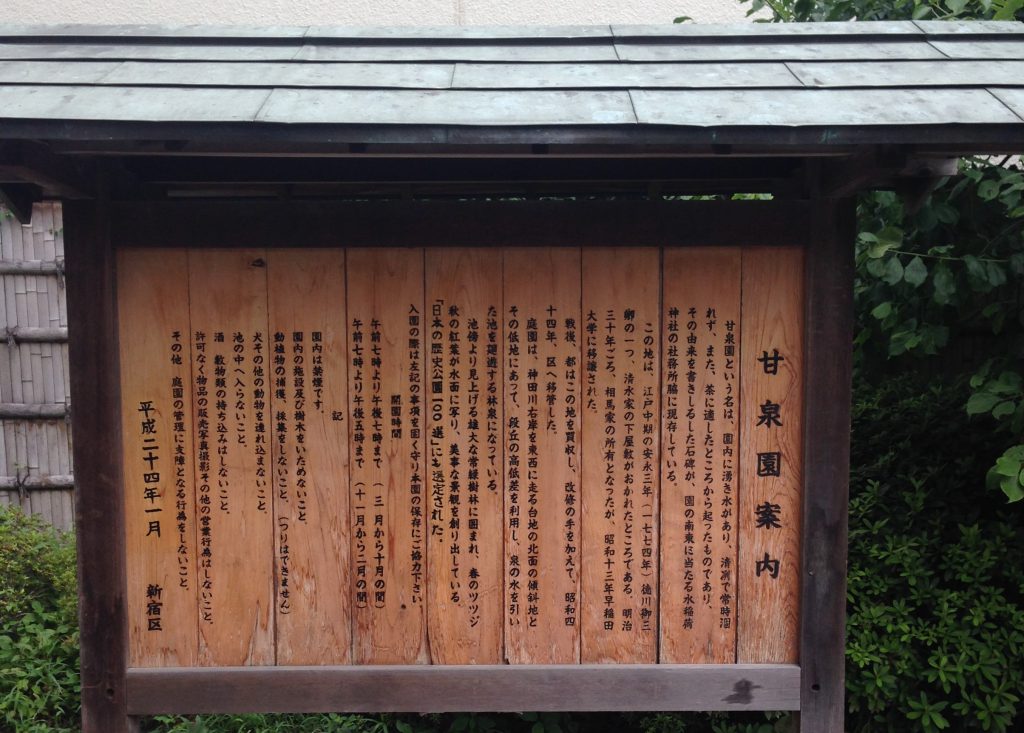 甘泉園案内
甘泉園という名は、園内に湧き水があり、清冽で常時涸
れず、また、茶に適したところから起ったものであり、
その由来を書きしるした石碑が、園の南東に当たる水稲荷
神社の社務所脇に現存している。
この地は、江戸中期の安永三年(一七七四年)徳川御三
卿の一つ、清水家の下屋敷がおかれたところである。明治
三十年ごろ、相馬家の所有となったが、昭和十三年早稲田
大学に移譲された。
戦後、都はこの地を買収し、改修の手を加えて、昭和四
十四年、区へ移管した。
庭園は、神田川右岸を東西に走る台地の北面の傾斜地と
その低地にあって、段丘の高低差を利用し、泉の水を引い
た池を廻遊する林泉になっている。
池傍より見上げる雄大な常緑樹林に囲まれ、春のツツジ
秋の紅葉が水面に写り、美事な景観を創り出している。
「日本の歴史公園100選」にも選定された。
入園の際は左記の事項を固く守り本園の保存にご協力下さい
開園時間
午前七時より午後七時まで(三月から十月の間)
午前七時より午後五時まで(十一月から二月の間)
記
園内は禁煙です。
園内の施設及び樹木をいためないこと。
動植物の捕獲、採集をしないこと。(つりはできません)
犬その他の動物を連れ込まないこと。
池の中へ入らないこと。
酒 穀物類の持ち込みはしないこと。
許可なく物品の販売写真撮影その他の営業行為はしないこと。
その他 庭園の管理に支障となる行為をしないこと。
平成二十四年一月 新宿区